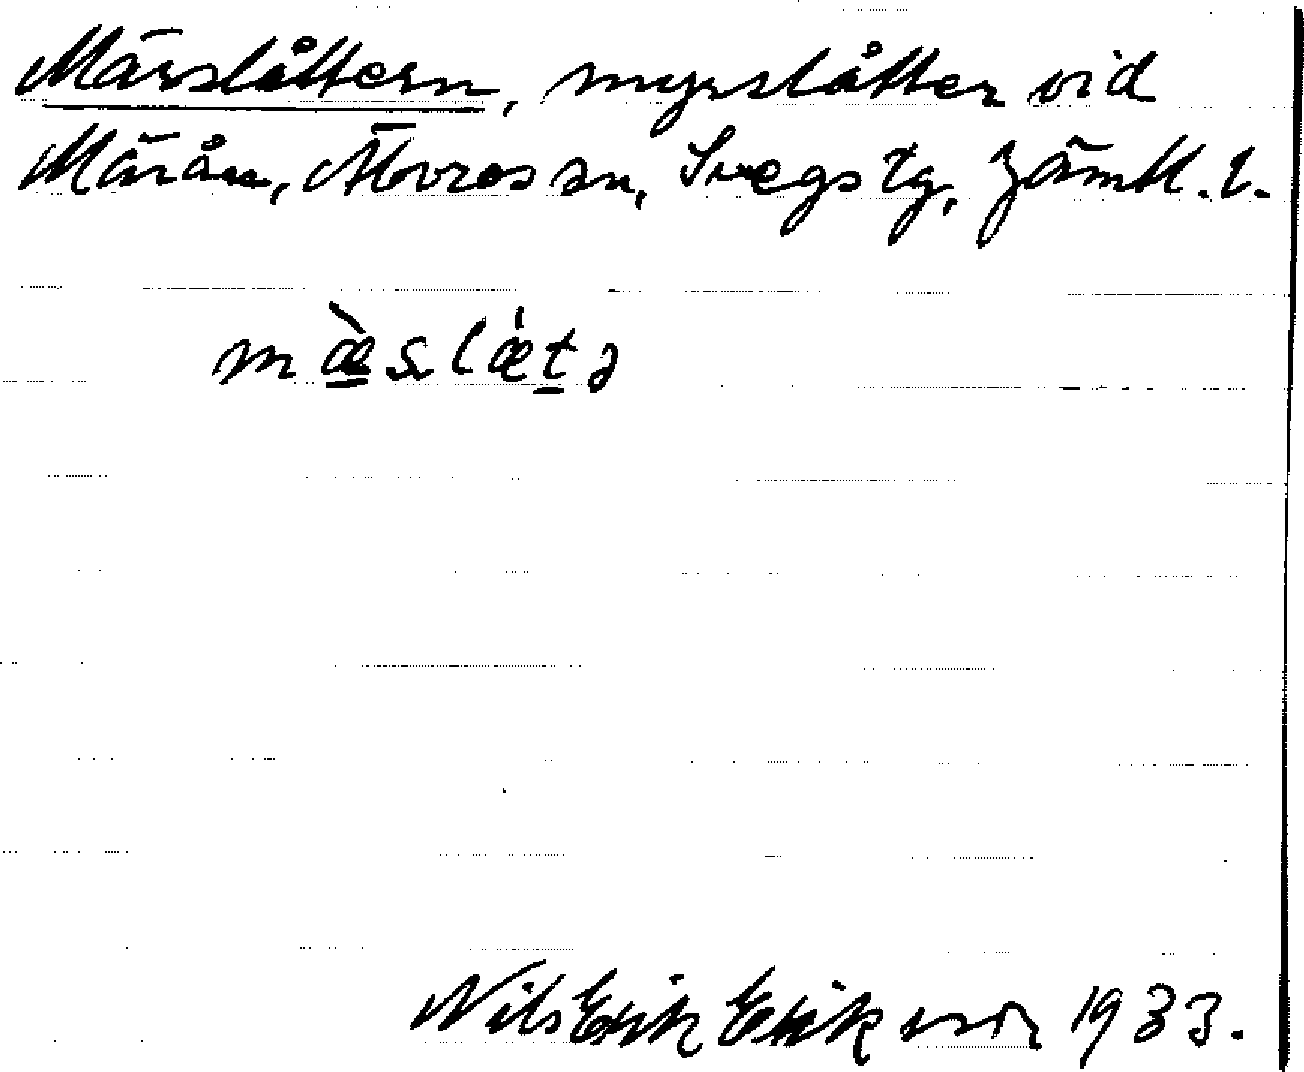 Märslåttern, myrslåtter vid
Märån, Älvros sn, Svegs tg, Jämtl. l.
mæ̀slǽtə
Nils Erik Erikson 1933.